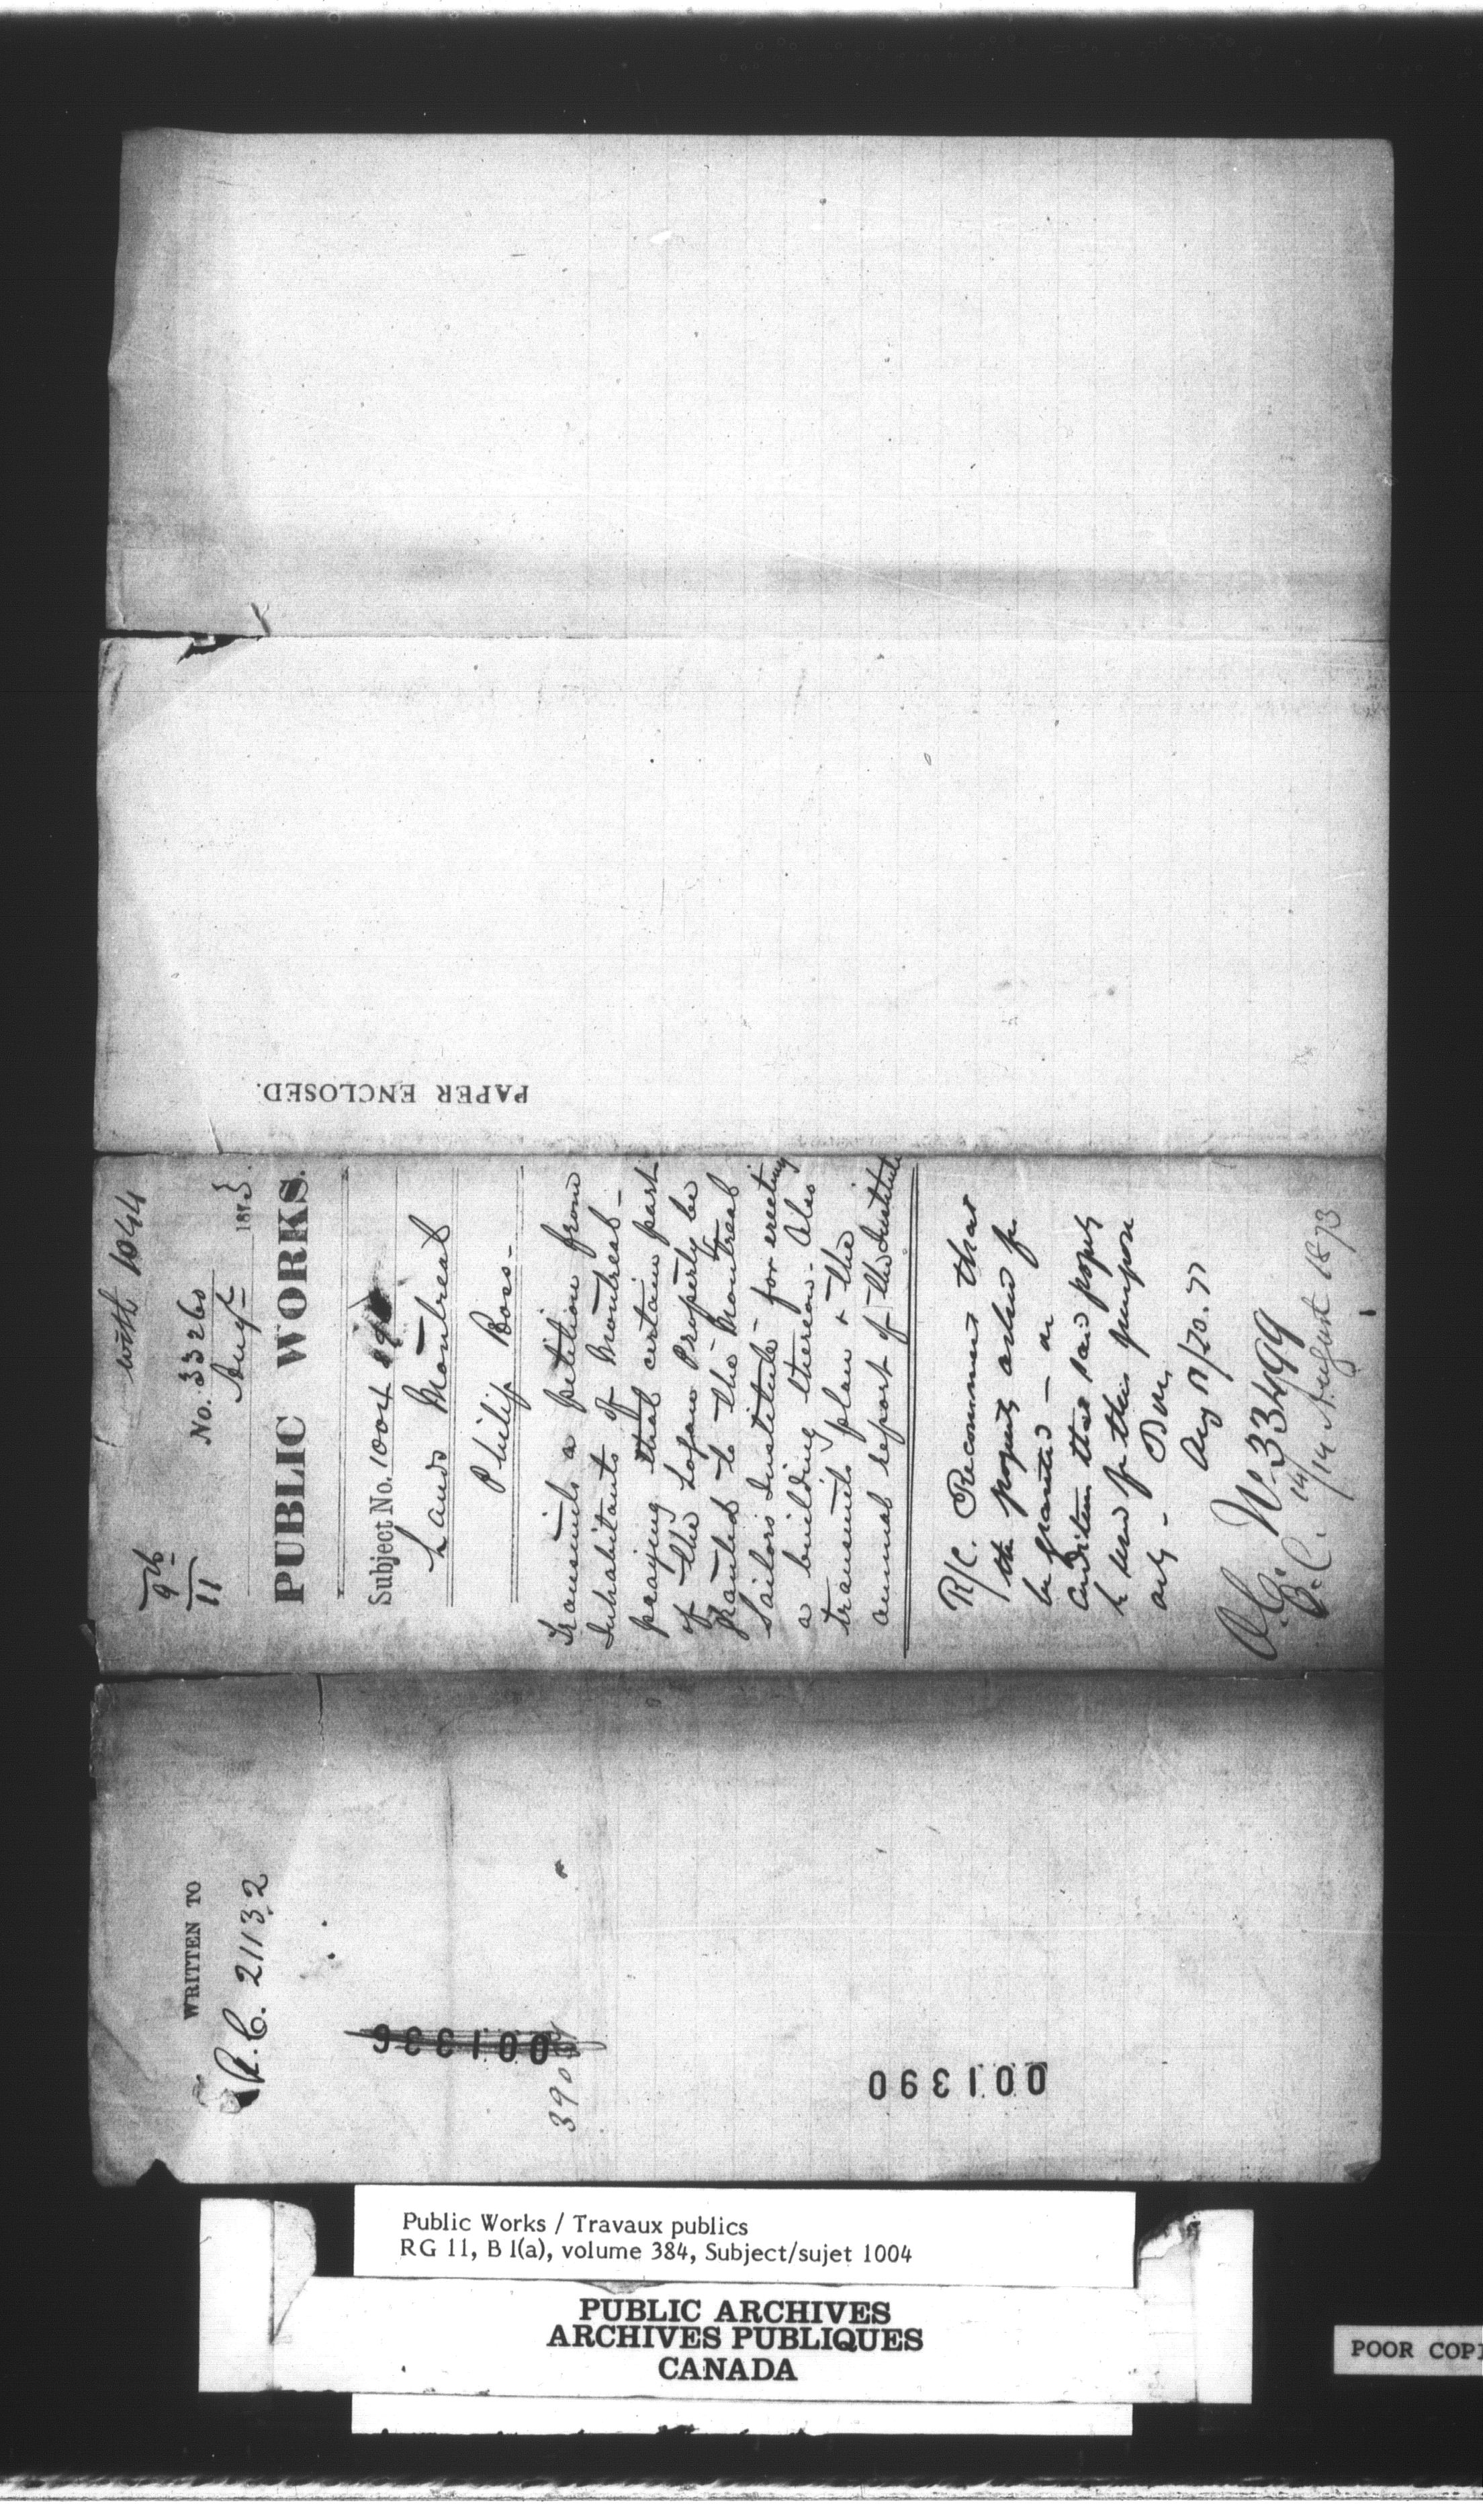 with 1044
9th
11
No. 33260
Augt 1873.
PUBLIC WORKS.
Subject No. 1004
Lands Montreal
Philip Ross-
Transmits a petition from
Inhabitants of Montreal-
praying that certain part
of the Logan Property be
granted to the Montreal
Sailors Institute - for erecting
a building thereon. Also
transmits plan & the
annual report of the Institute
R/C. Recommend that
the property asked for
be granted - on
condition that said property
be used for this purpose
only -
Aug
O.C. No 33499
14 August 1873
PAPER ENCLOSED.
WRITTEN TO
P.C. 21132
001336
390
001390
Public Works / Travaux publics
RG 11, B 1(a), volume 384, Subject/sujet 1004
PUBLIC ARCHIVES
ARCHIVES PUBLIQUES
CANADA
POOR COPI